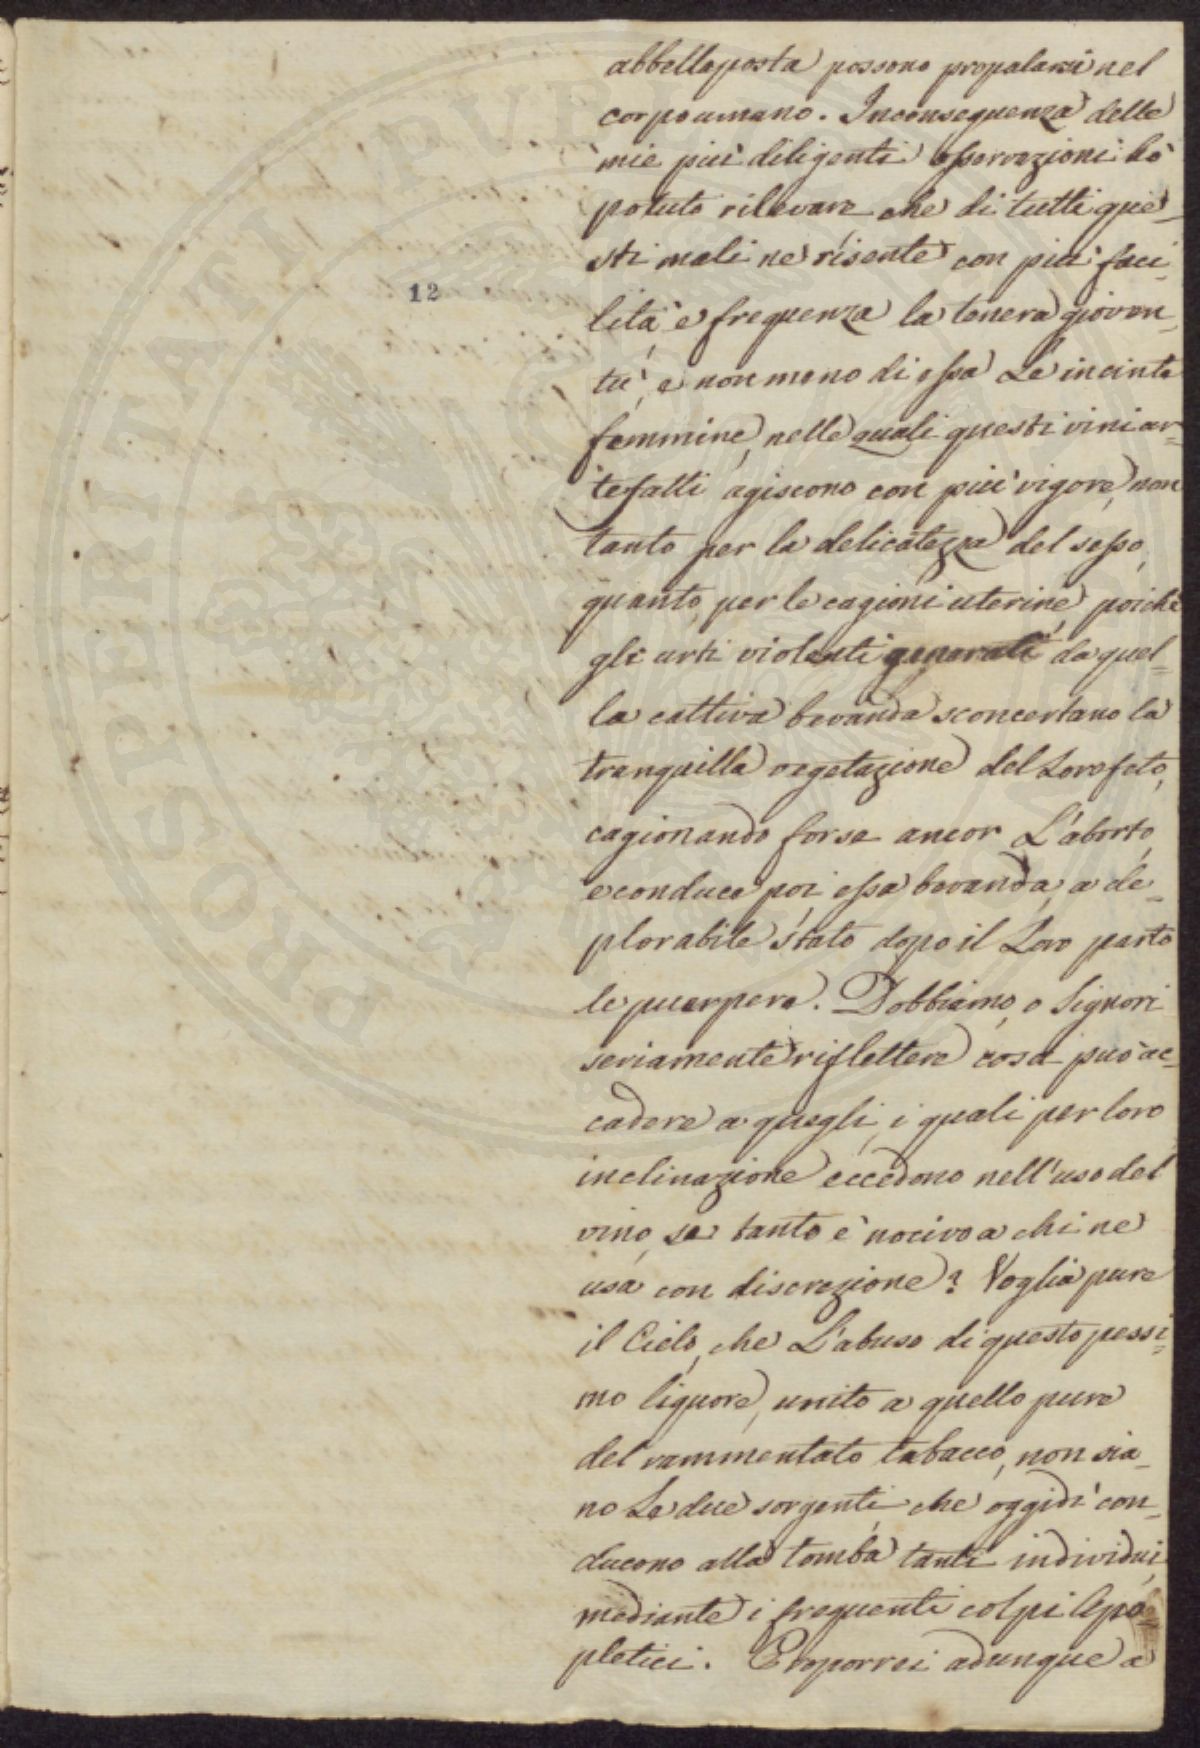 abbellaposta possono propalarsi nel
corpo umano. Inconseguenza delle
mie più diligenti osservazioni hò
potuto rilevare che di tutti que-
sti mali ne risente con più faci-
lità, e frequenza la tenera gioven-
tù, e non meno di essa Le incinte
femmine, nelle quali questi vini ar-
tefatti agiscono con più vigore, non
tanto per la delicatezza del sesso,
quanto per le cagioni uterine, poichè
gli urti violenti generati da quel-
la cattiva bevanda sconcertano la
tranquilla vegetazione del Loro feto,
cagionando forse ancor L'aborto,
e conduce poi essa bevanda, a de-
plorabile stato dopo il Loro parto
le puerpere. Dobbiamo, o Signori
seriamente riflettere cosa può ac-
cadere a quegli, i quali per loro
inclinazione eccedono nell'uso del
vino, se tanto è nocivo a chi ne
usa con discrezione? Voglia pure
il Cielo, che L'abuso di questo pessi-
mo liquore, unito a quello pure
del rammentato tabacco, non sia-
no Le due sorgenti, che oggidì con-
ducono alla tomba tanti individui,
mediante i frequenti colpi Apo-
pletici. Proporrei adunque a
12
PROSPERITATI PVBL